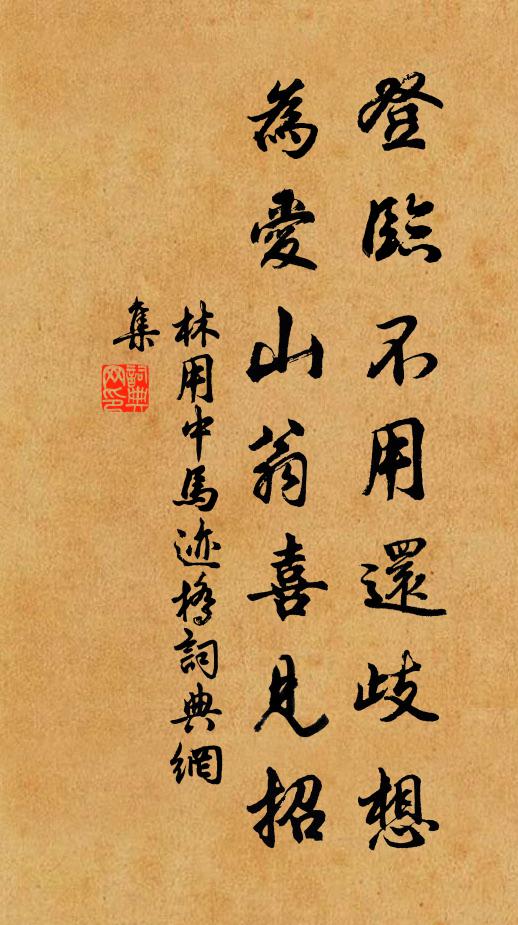 登臨不用還歧想
為愛山翁喜見招
林用中馬迹橋詞典網
集
詞典
网印